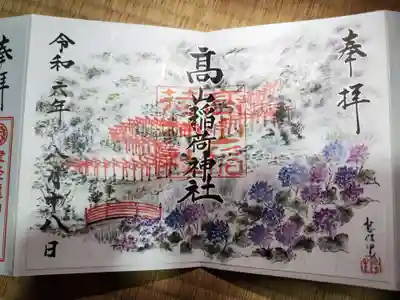 奉拝
高山稲荷神社
令和六年八月十八日
奉拝